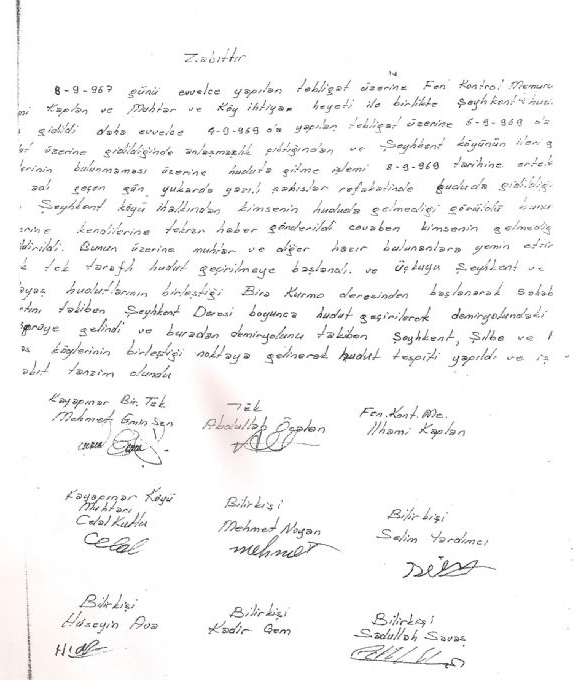 Zabıttır
8-9-967 günü evvelce yapılan tebligat üzerine Fen Kontrol Memuru
mi Kaplan ve Muhtar ve Köy ihtiyar heyeti ile birlikte Şeyhkent hud
gidildi daha evvelce 4-9-969 da yapılan tebligat üzerine 5-9-969 da
üzerine gidildiğinde anlaşmazlık çıktığından ve Şeyhkent köyünün ileri g
lerinin bulunmaması üzerine huduta gitme işlemi 8-9-969 tarihine ertele
adı geçen gün yukarda yazılı şahıslar refakatinde hududa gidildiği
Şeyhkent köyü halkından kimsenin hududa gelmediği görüldü bunu
rine kendilerine tekrar haber gönderildi cevaben kimsenin gelmediğ
dirildi. Bunun üzerine muhtar ve diğer hazır bulunanlara yemin ettir
tek taraflı hudut geçirilmeye başlandı. ve Üçkuyu Şeyhkent ve
ayaş hudutlarının birleştiği Bira Kurmo deresinden başlanarak
takiben Şeyhkent Deresi boyunca hudut geçirilerek demiryolundaki
prüye gelindi ve buradan demiryolunu takiben Şeyhkent, Şilbe ve
köylerinin birleştiği noktaya gelinerek hudut tespiti yapıldı ve iş
abıt tanzim olundu
Kayapınar Bir. Tek
Mehmet Emin Şen
Tek
Abdullah Öcalan
Fen. Kont. Me.
İlhami Kaplan
Kayapınar Köyü
Muhtarı
Celal Kutlu
Celal
Bilirkişi
Mehmet Noyan
mehmet
Bilirkişi
Selim Yardımcı
Bilirkişi
Hüseyin Ava
Bilirkişi
Kadir Gem
Bilirkişi
Sadullah Savaş